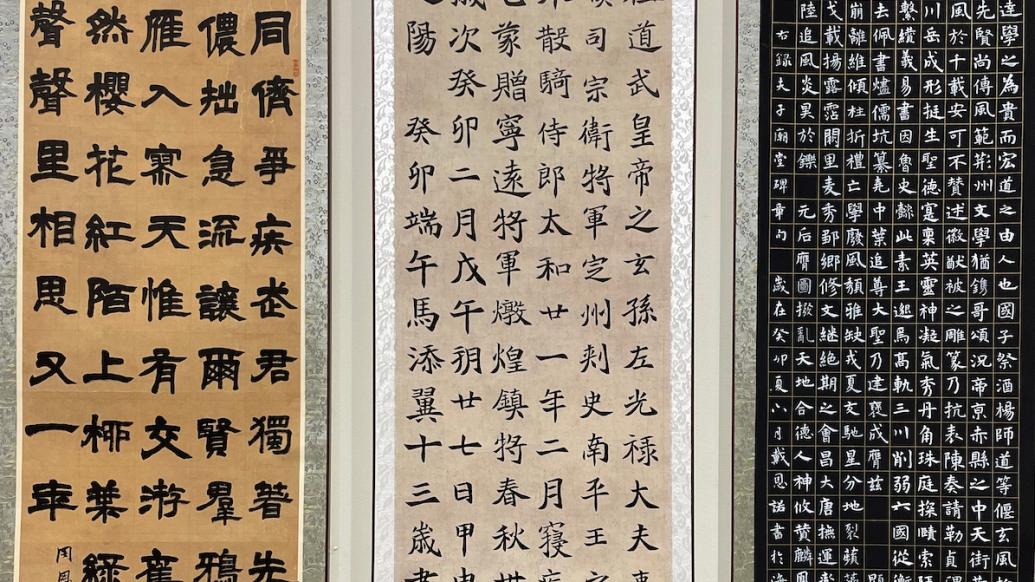 達學之為貴而宏道之由人也國子祭酒楊師道等偃玄風
先賢尚傳風範荊州文學猶鐫哥頌況帝京赤縣之中天街
風於千載安可不贊述徽猷被之雕篆乃抗表陳奏請勒貞
川岳成形挺生聖德寔稟英靈神凝氣秀丹角珠庭探賾索
繫纘義易書因魯史懿此素王邈焉高軌三川削弱六國從
去佩書燼儒坑纂堯中葉追尊大聖乃建褒成膺茲
崩離維傾柱折禮亡學廢風頹雅缺戎夏交馳星分地裂蘋
戈載揚露霑闕里麥秀鄒鄉修文繼絕期之會昌大唐撫運
陸追風炎昊於鑠元后膺圖撥亂天地合德人神攸贊麟
右錄夫子廟堂碑章句歲在癸卯夏六月戴恩諾書於
道武皇帝之玄孫左光祿大夫
司宗衛將軍定州刾史南平王之
散騎侍郎太和廿一年二月寑疾
蒙贈寧遠將軍燉煌鎮將春秋
歲次癸卯二月戊午朔廿七日甲申
陽癸卯端午馬添翼十三歲書
同儕爭疾走君獨著先
儂拙急流讓爾賢羣鴉
雁入寮天惟有交游舊
然櫻花紅陌上柳葉綠
聲聲里相思又一年